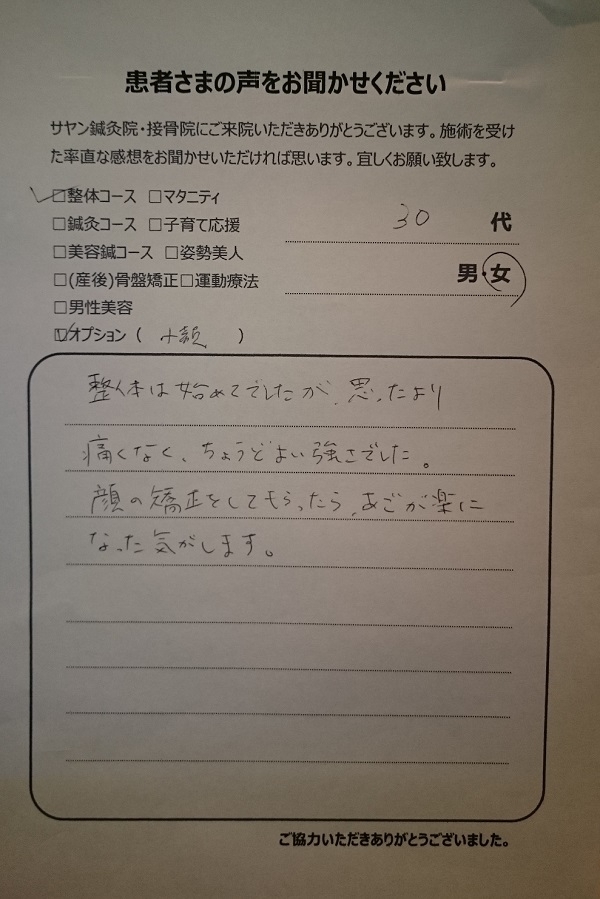 患者さまの声をお聞かせください
サヤン鍼灸院・接骨院にご来院いただきありがとうございます。施術を受け
た率直な感想をお聞かせいただければ思います。宜しくお願い致します。
□整体コース □マタニティ
□鍼灸コース □子育て応援
30 代
□美容鍼コース □姿勢美人
□(産後)骨盤矯正□運動療法
男・女
□男性美容
□オプション ( 小顔 )
整体は始めてでしたが、思ったより
痛くなく、ちょうどよい強さでした。
顔の矯正をしてもらったら、あごが楽に
なった気がします。
ご協力いただきありがとうございました。